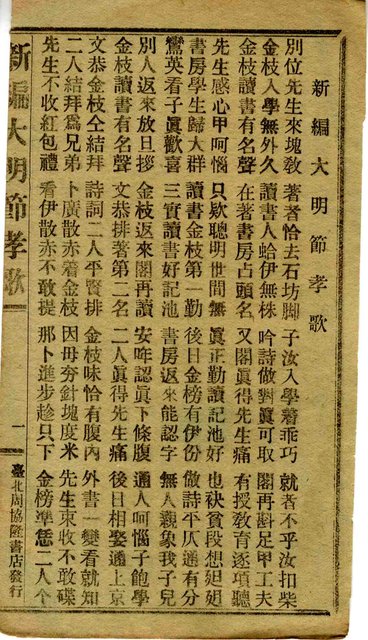 新編大明節孝歌
別位先生來塊敎 著著恰去石坊脚 子汝入學著乖巧 就著不乎汝扣柴
金枝入學無外久 讀書人蛤伊無株 吟詩做對眞可取 閣再斟足甲工夫
金枝讀書有名聲 在著書房占頭名 又閣眞得先生痛 有授敎育逐項聽
先生感心甲呵惱 只欵聰明世間無 眞正勤讀記池好 也袂貧段想廻廻
書房學生歸大群 讀書金枝第一勤 後日金榜有伊份 做詩平仄通有分
鸞英看子眞歡喜 三實讀書好記池 書房返來能認字 無人親象我子兒
別人返來放日拶 金枝返來閣再讀 安咋認眞卜條腹 通人呵惱子飽學
金枝讀書有名聲 文恭排著第二名 二人眞得先生痛 後日相娶通上京
文恭金枝仝結拜 詩詞二人平賢排 金枝味恰有腹內 外書一變看就知
二人結拜爲兄弟 卜廣散赤着金枝 因母夯針塊度米 先生束收不敢碟
先生不收紅包禮 看伊散赤不敢提 那卜進步趁只下 金榜準恁二人个
新編大明節孝歌 一 臺北周協隆書店發行